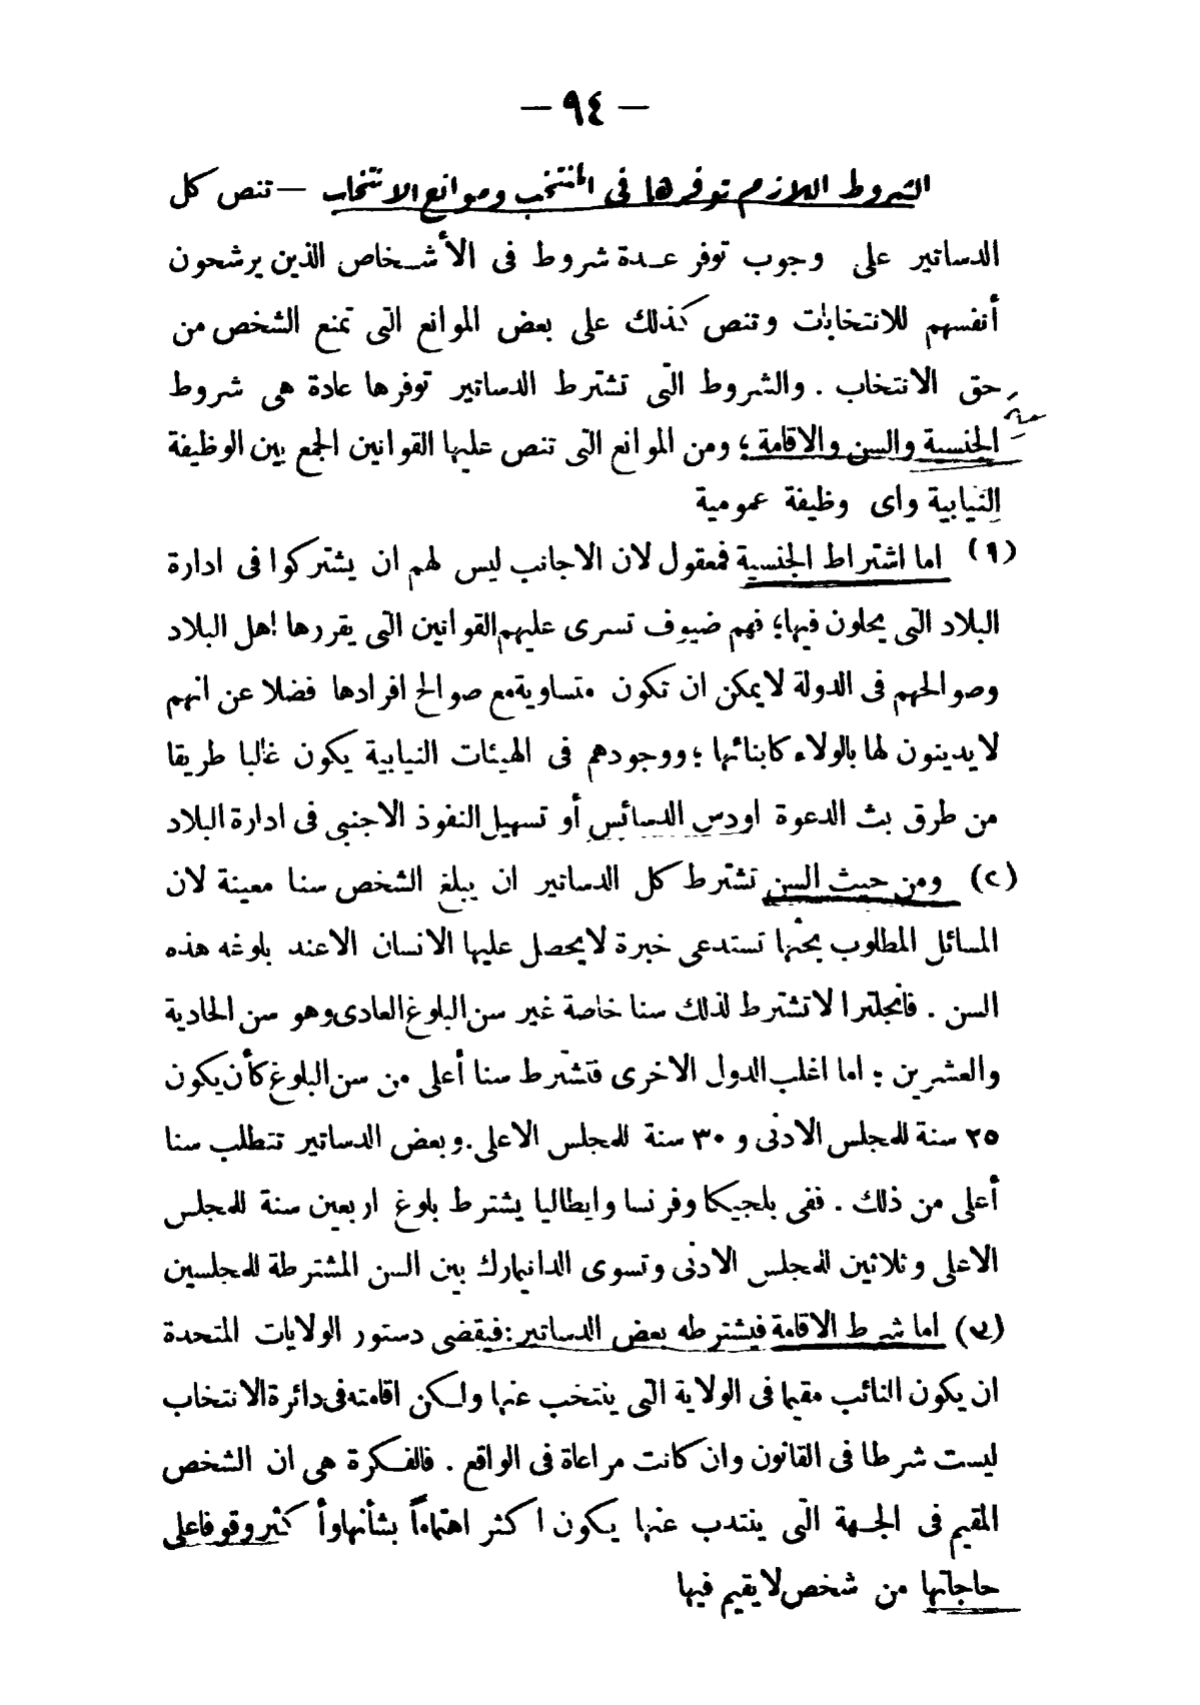 — ٩٤ —
الشروط اللازم توفرها فى المنتخب وموانع الانتخاب — تنص كل
الدساتير على وجوب توفر عدة شروط فى الأشخاص الذين يرشحون
أنفسهم للانتخابات وتنص كذلك على بعض الموانع التى تمنع الشخص من
حق الانتخاب . والشروط التى تشترط الدساتير توفرها عادة هى شروط
الجنسية والسن والاقامة ؛ ومن الموانع التى تنص عليها القوانين الجمع بين الوظيفة
النيابية واى وظيفة عمومية
(١) اما اشتراط الجنسية فمعقول لان الاجانب ليس لهم ان يشتركوا فى ادارة
البلاد التى يحلون فيها؛ فهم ضيوف تسرى عليهم القوانين التى يقررها اهل البلاد
وصوالحهم فى الدولة لا يمكن ان تكون متساوية مع صوالح افرادها فضلا عن انهم
لا يدينون لها بالولاء كابنائها ؛ ووجودهم فى الهيئات النيابية يكون غالبا طريقا
من طرق بث الدعوة اودس الدسائس أو تسهيل النفوذ الاجنبى فى ادارة البلاد
(٢) ومن حيث السن تشترط كل الدساتير ان يبلغ الشخص سنا معينة لان
المسائل المطلوب بحثها تستدعى خبرة لا يحصل عليها الانسان الا عند بلوغه هذه
السن . فانجلترا لا تشترط لذلك سنا خاصة غير سن البلوغ العادى وهو سن الحادية
والعشرين ؛ اما اغلب الدول الاخرى فتشترط سنا أعلى من سن البلوغ كأن يكون
٢٥ سنة للمجلس الادنى و ٣٠ سنة للمجلس الاعلى . وبعض الدساتير تتطلب سنا
أعلى من ذلك . ففى بلجيكا وفرنسا وايطاليا يشترط بلوغ اربعين سنة للمجلس
الاعلى وثلاثين للمجلس الادنى وتسوى الدانيمارك بين السن المشترطة للمجلسين
(٣) اما شرط الاقامة فيشترطه بعض الدساتير : فيقضى دستور الولايات المتحدة
ان يكون النائب مقيما فى الولاية التى ينتخب عنها ولكن اقامته فى دائرة الانتخاب
ليست شرطا فى القانون وان كانت مراعاة فى الواقع . فالفكرة هى ان الشخص
المقيم فى الجهة التى ينتدب عنها يكون اكثر اهتماماً بشأنها وأ كثر وقوفا على
حاجاتها من شخص لا يقيم فيها